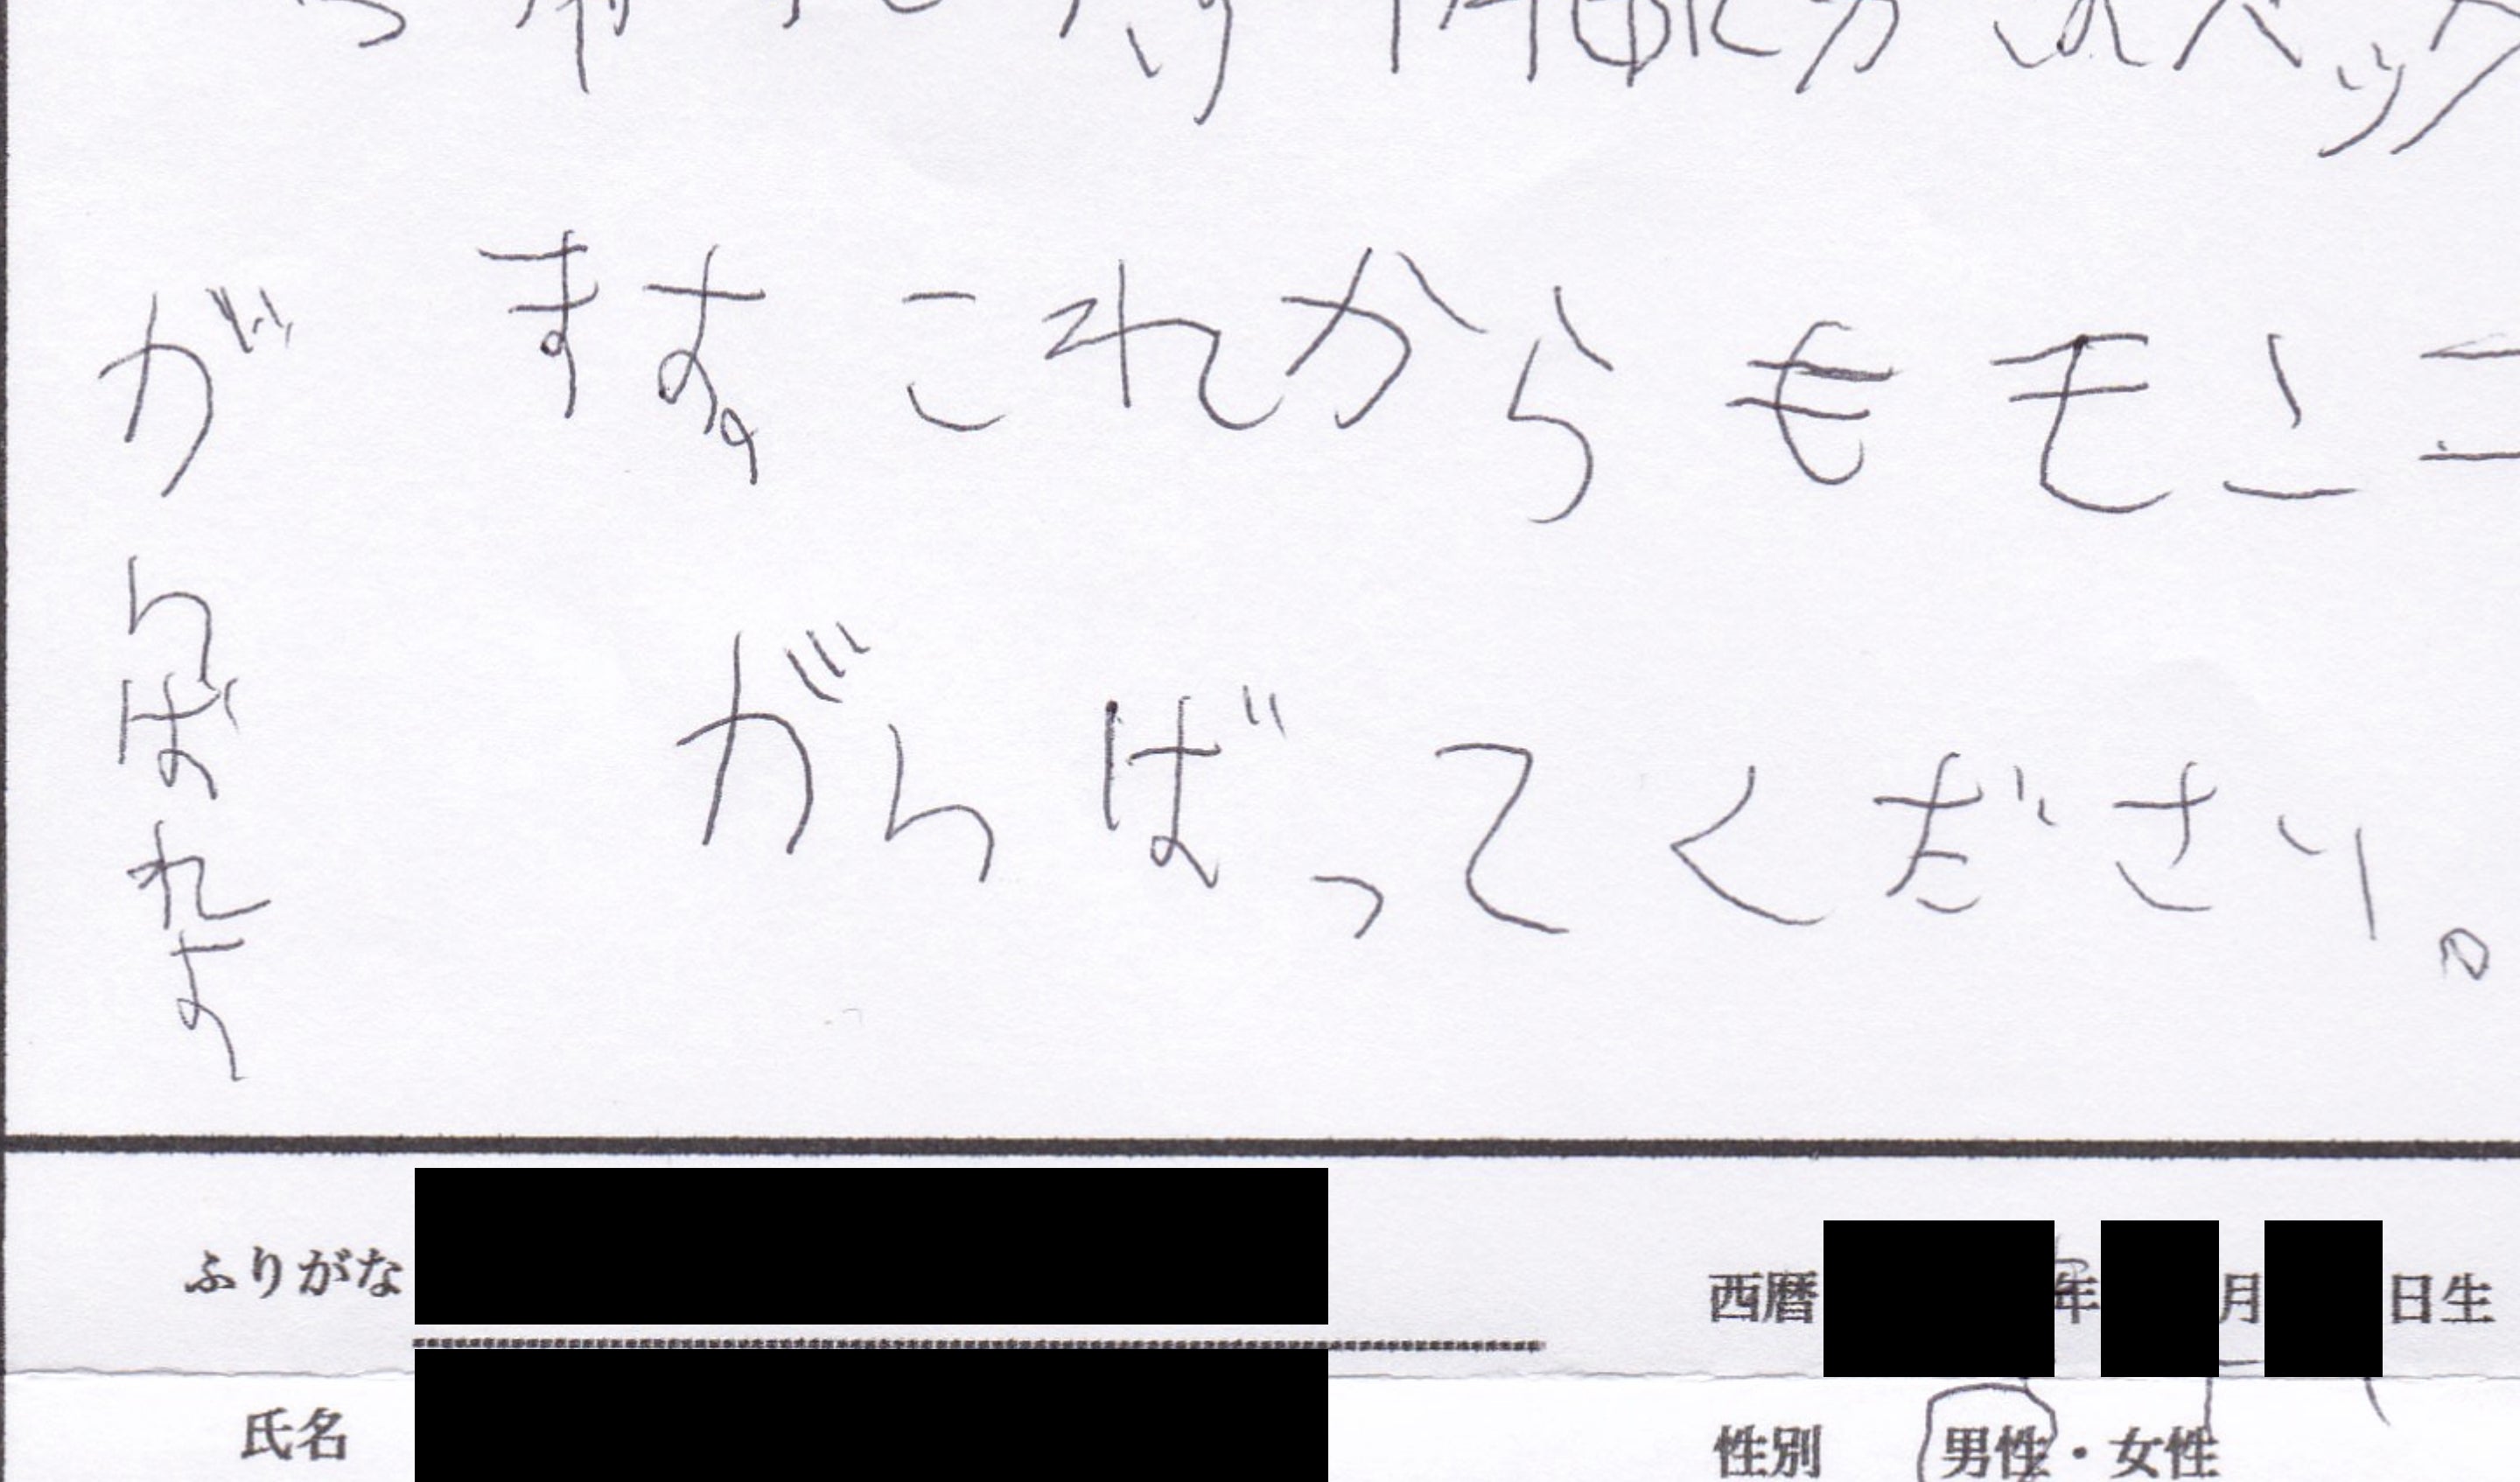 ます。これからもモニ
がんばってください。
がんばれよ
ふりがな
西暦 年 月 日生
氏名
性別 男性・女性